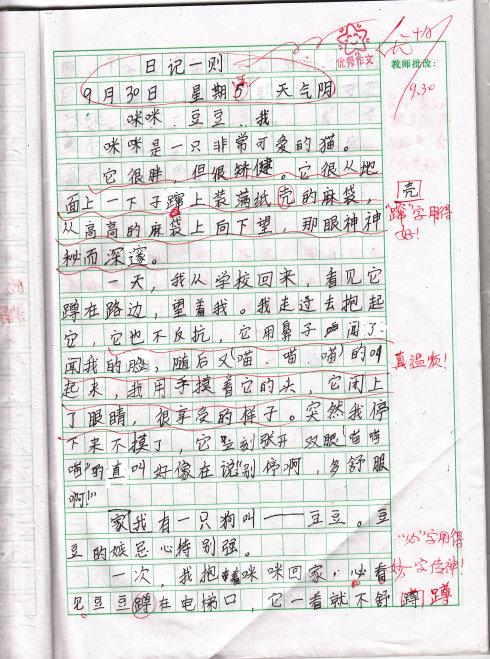 优秀作文
优+分
教师批改：
9.30
日记一则
9月30日 星期5 天气阴
咪咪、豆豆、我
咪咪是一只非常可爱的猫。
它很胖，但很矫健。它很从地
面上一下子蹿上装满纸壳的麻袋，
壳
从高高的麻袋上向下望，那眼神神
"蹿"字用得
好！
秘而深邃。
一天，我从学校回来，看见它
蹲在路边，望着我。我走过去抱起
它，它也不反抗，它用鼻子闻了
闻我的脸，随后又(喵、喵、喵)的叫
真温顺！
起来，我用手摸着它的头，它闭上
了眼睛，很享受的样子。突然我停
下来不摸了，它立刻张开双眼"喵喵
喵"的直叫好像在说"别停啊，多舒服
啊!"
家我有一只狗叫——豆豆。豆
豆的嫉忌心特别强。
"必"字用得
妙一字传神！
一次，我抱着咪咪回家，必看
见豆豆蹲在电梯口，它一看就不舒
蹲 蹲